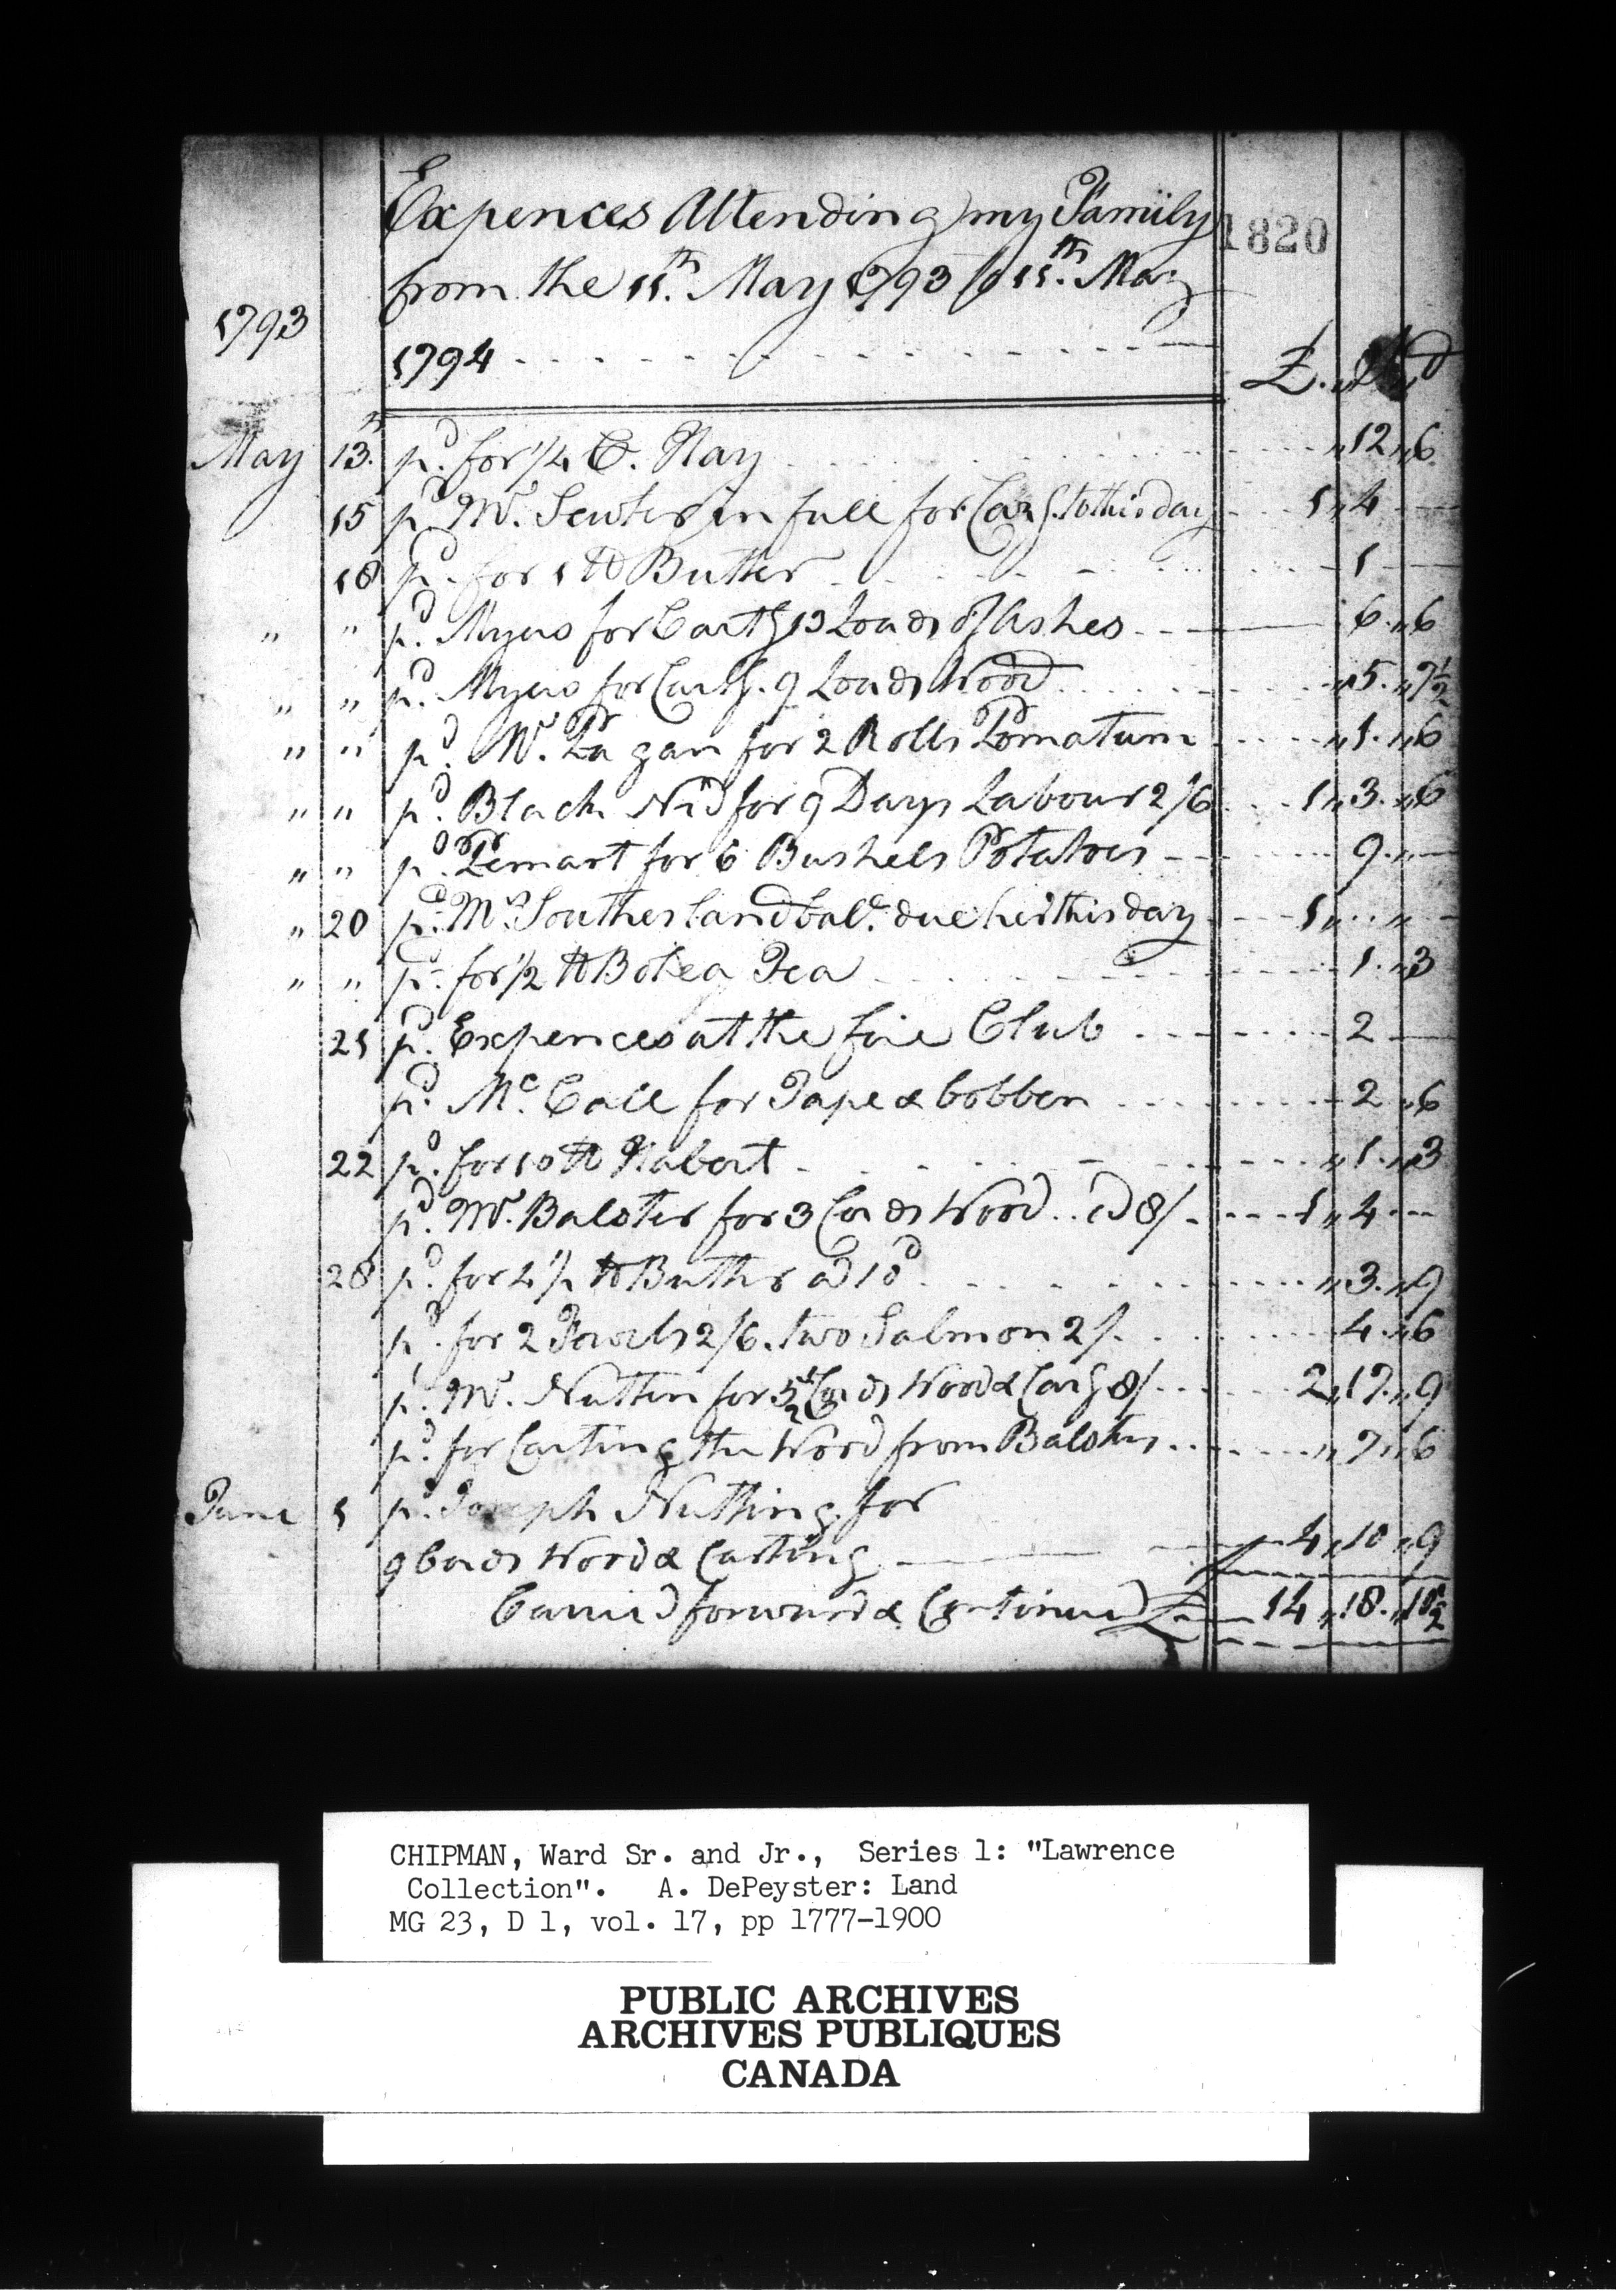 Expences Attending my Family
1820
from the 11th. May 1793 to 11th. May
1793
1794
£. „ S „ d
May 13th. pd. for 1/4 C. Hay „12„6
15 pd. Mr. Sewter in full for Cag. to this day 1„4
18 pd. for 1 lb Butter 1
„ „ pd. Myers for Cartg 13 Loads of Ashes 6„6
„ „ pd. Myers for Cartg. 9 Loads Wood „5„7½
„ „ pd. Mr. Pagan for 2 Rolls Pomatum „1„6
„ „ pd. Black Nid for 9 Days Labour 2/6 1„3„6
„ „ pd. for 6 Bushels Potatoes 9„
„ 20 pd. Mrs. Southerland balce. due her this day 1„ „
„ „ pd. for 1/2 lb Bohea Tea 1„3
21 pd. Expences at the fire Club 2
pd. Mc. Call for Tape & bobben 2„6
22 pd. for 10 lb Halbert „1„3
pd. Mr. Balster for 3 Cords Wood @ 8/ 1„4
28 pd. for 4 1/2 lb Butter @ 10d „3„9
pd. for 2 Fowls 2/6. two Salmon 2/. 4„6
pd. Mr. Nuttin for 5½ Cords Wood & Cag 8/ 2„17„9
pd. for Carting the Wood from Balsters „7„6
June 1 pd. Joseph Nutting for
9 Cords Wood & Carting 4„10„9
Carried forward & Continued £ 14„18„1½
CHIPMAN, Ward Sr. and Jr., Series 1: "Lawrence
Collection". A. DePeyster: Land
MG 23, D 1, vol. 17, pp 1777-1900
PUBLIC ARCHIVES
ARCHIVES PUBLIQUES
CANADA